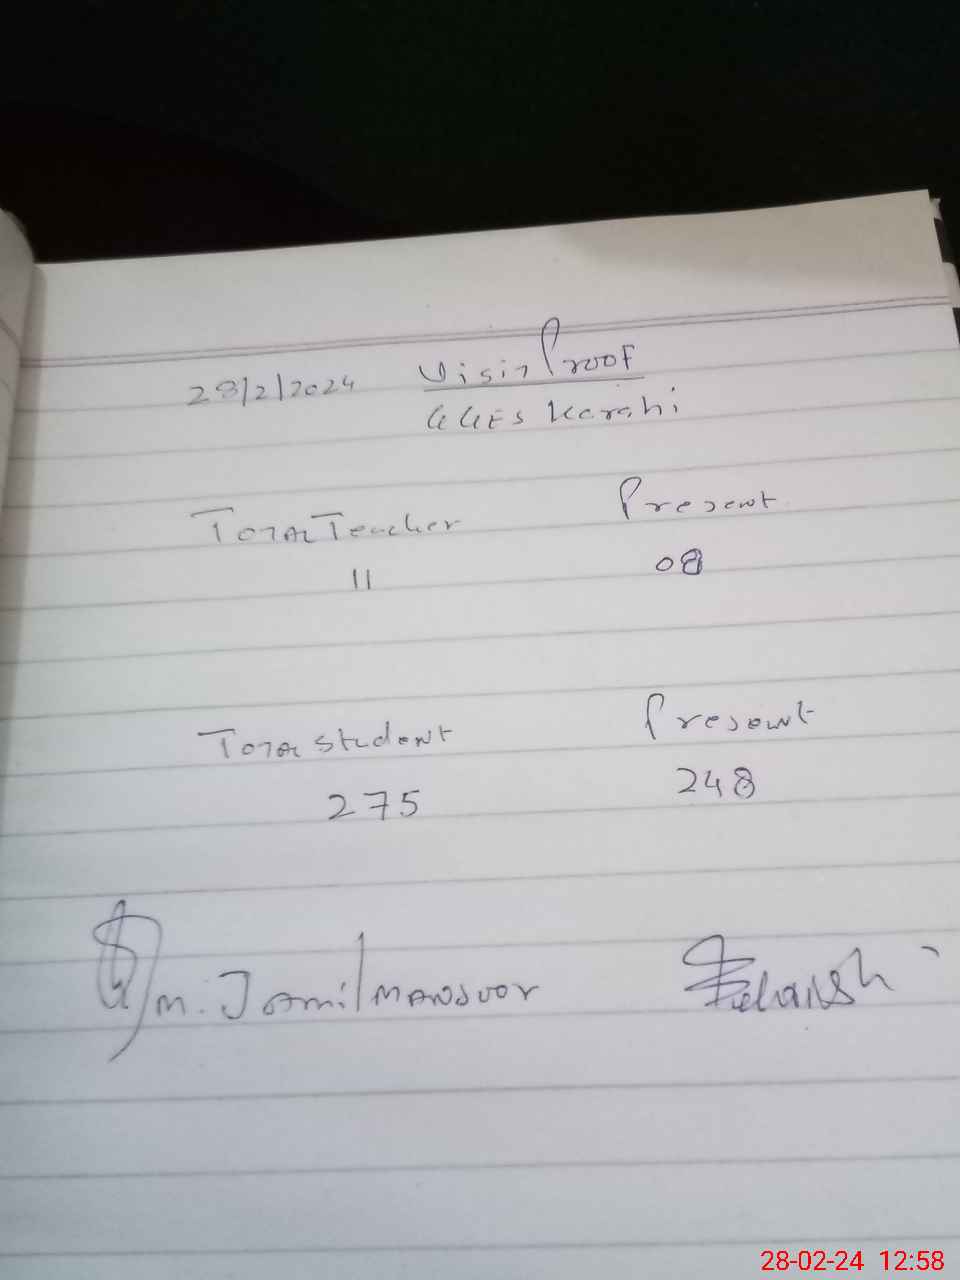 28/2/2024 Visit Proof
GGES Karahi
Total Teacher Present
11 08
Total student Present
275 248
M. Jamil Mansoor
28-02-24 12:58